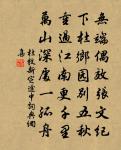 無端偶效張文紀
下杜鄉園別五秋
重過江南更千里
萬山深處一孤舟
杜牧新定途中詞典網
集